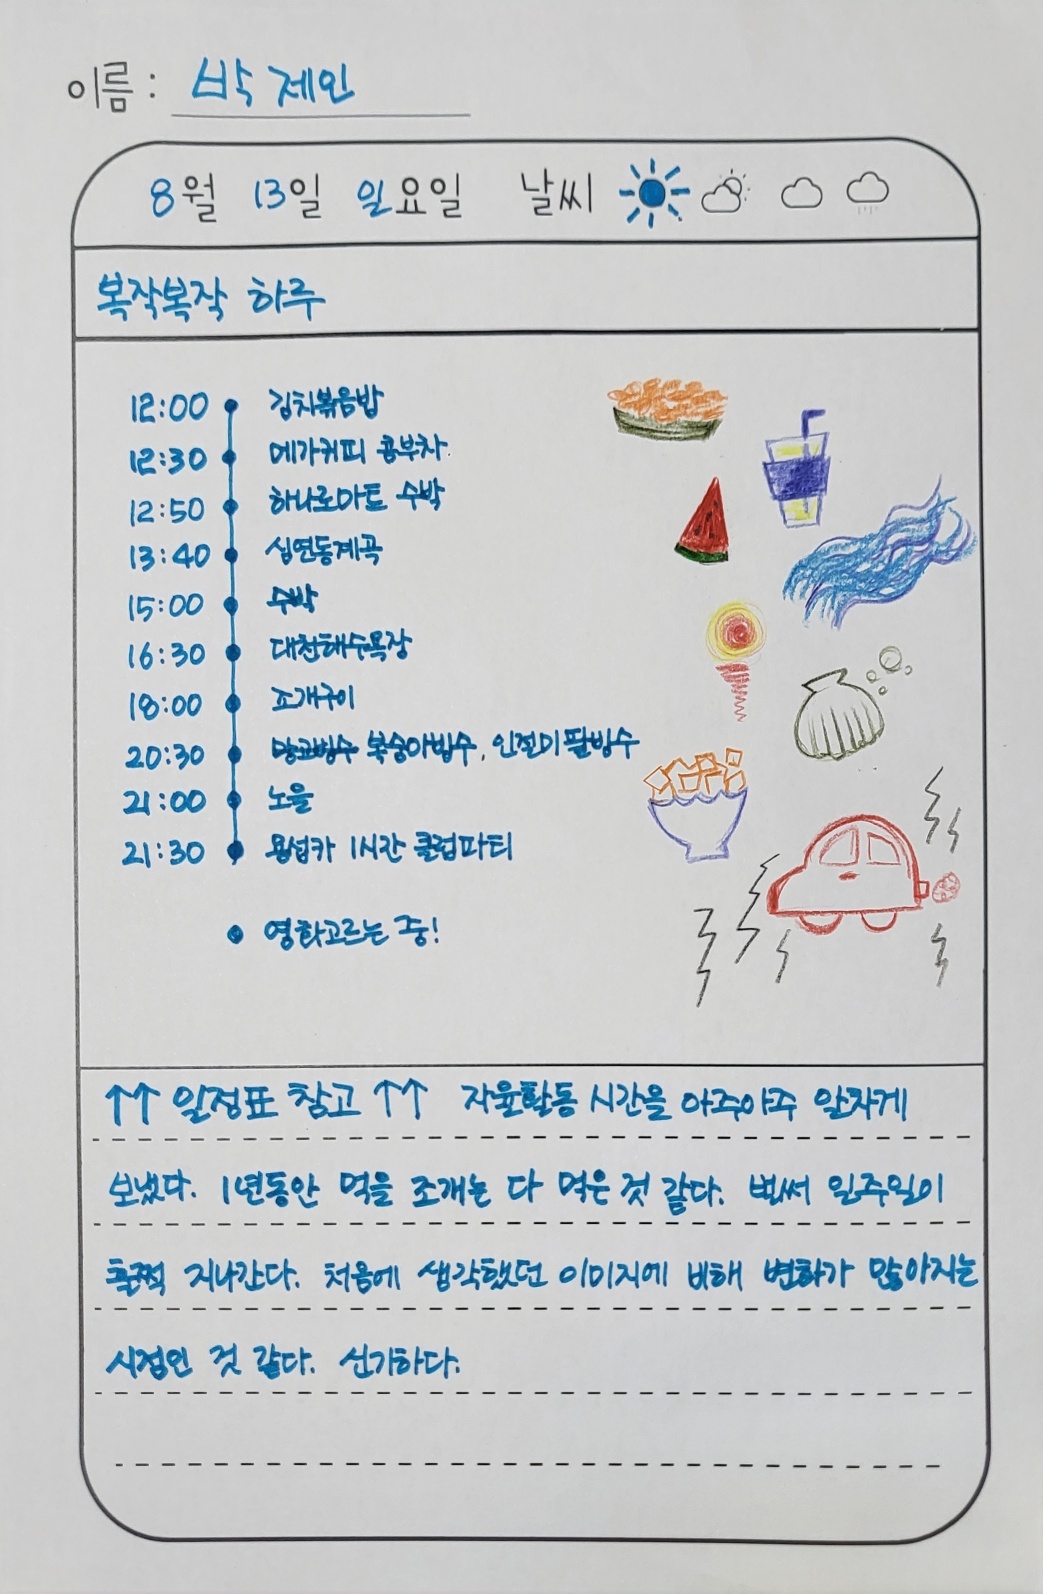 이름 : 박제인
8월 13일 일요일 날씨
복작복작 하루
12:00 김치볶음밥
12:30 메가커피 콤부차
12:50 하나로마트 수박
13:40 심연동계곡
15:00 수박
16:30 대천해수욕장
18:00 조개구이
20:30 망고빙수 복숭아빙수, 인절미팥빙수
21:00 노을
21:30 용섭카 1시간 클럽파티
영화고르는 중!
↑↑ 일정표 참고 ↑↑ 자율활동 시간을 아주아주 알차게
보냈다. 1년동안 먹을 조개는 다 먹은 것 같다. 벌써 일주일이
훌쩍 지나간다. 처음에 생각했던 이미지에 비해 변화가 많아지는
시점인 것 같다. 신기하다.